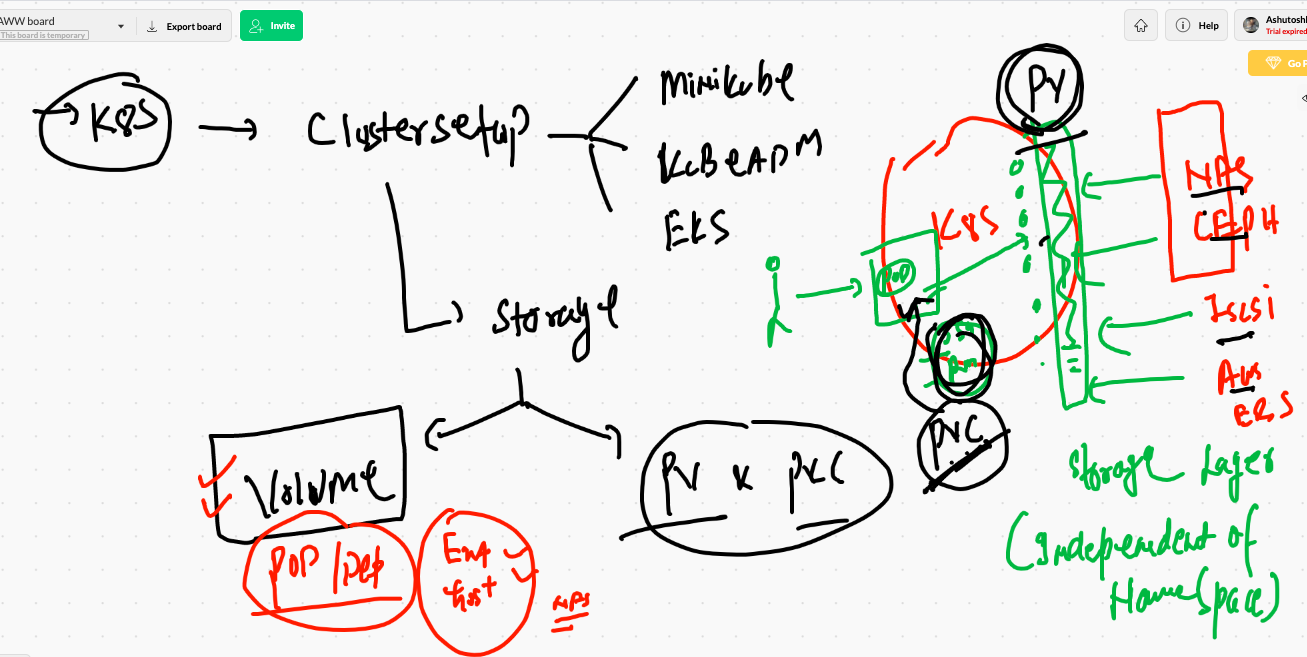 AWW board
This board is temporary
Export board
Invite
Help
Ashutosh
Trial expired
Go P
K8S
Clustersetup
Minikube
KuBeADM
EKS
Storage
Volume
POD/Dep
Emt
host
NFS
PV & PVC
PV
K8S
POD
PVC
NFS
CEPH
Iscsi
Aws
EBS
Storage Layer
(Independent of
Namespace)